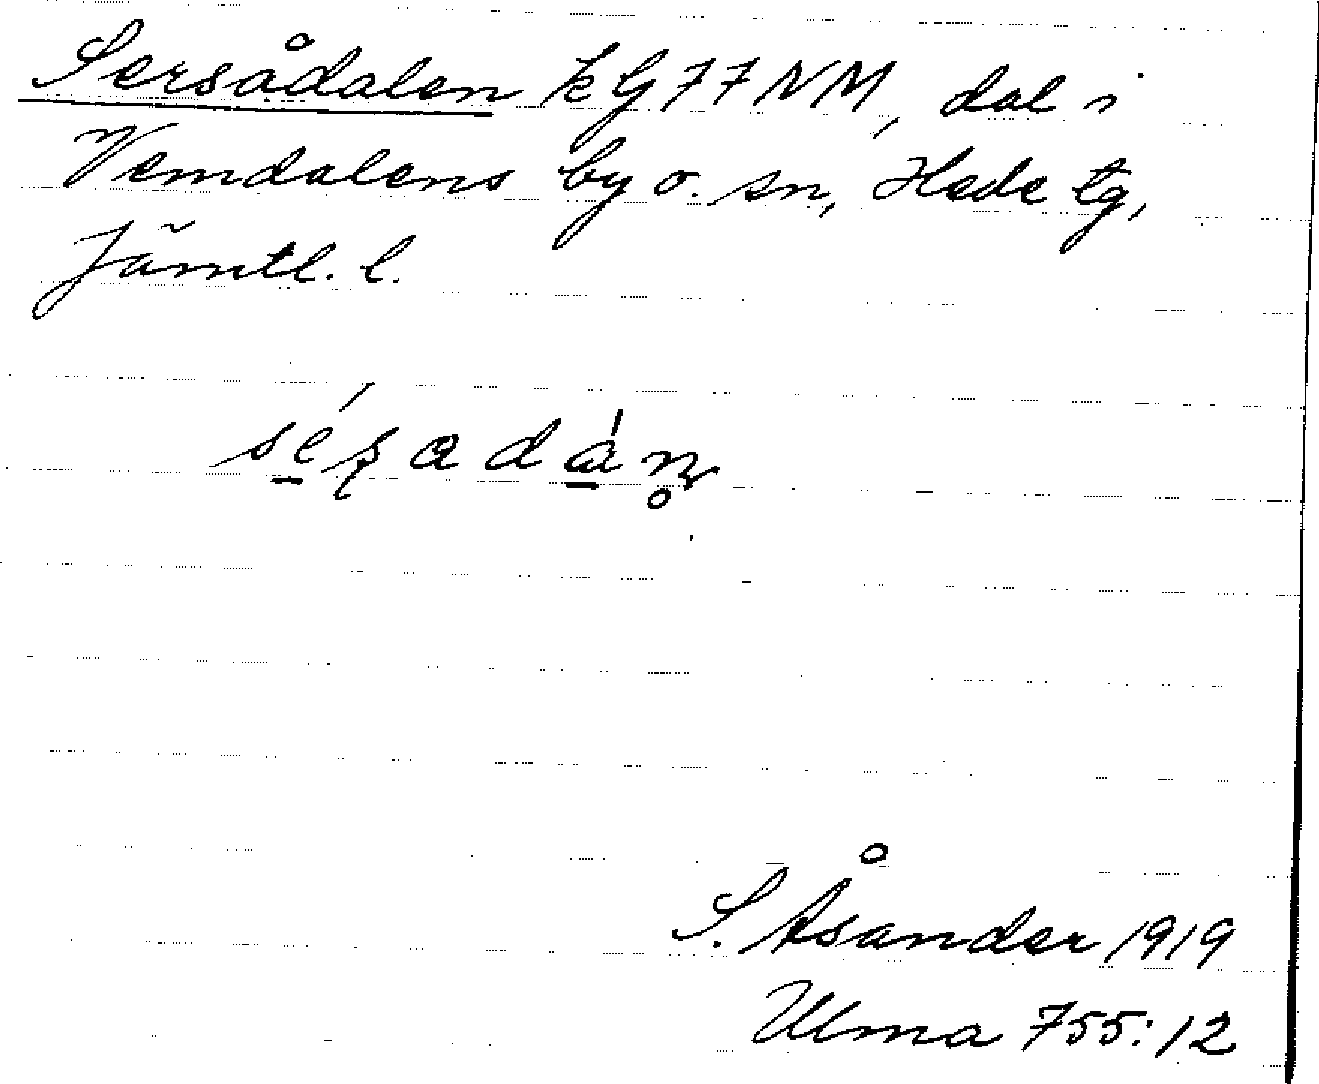 Sersådalen kG77NM, dal i
Vemdalens by o. sn, Hede tg,
Jämtl. l.
S. Åsander 1919
Ulma 755:12